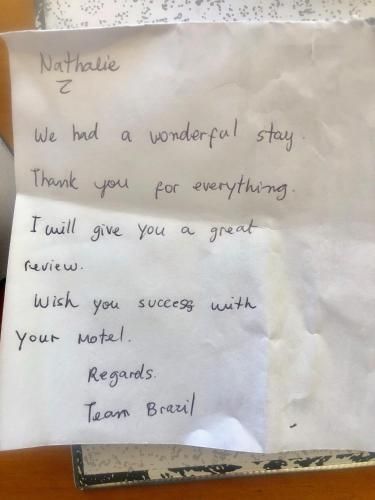 Nathalie
We had a wonderful stay.
Thank you for everything.
I will give you a great
review.
Wish you success with
your Motel.
Regards.
Team Brazil